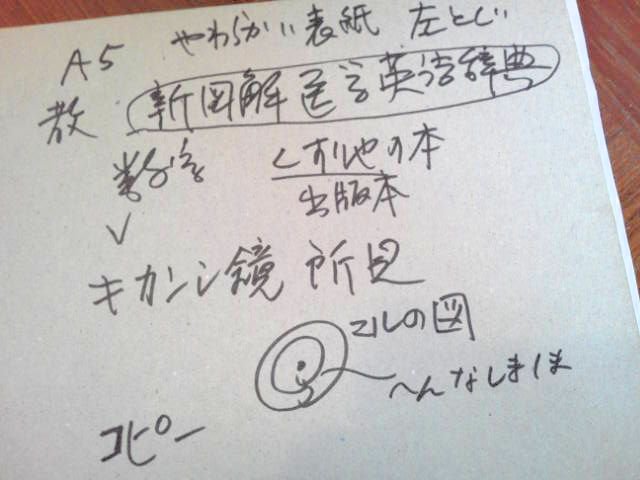 A5 やわらかい表紙 左とじ
教 新図解医学英語辞典
くすりやの本
出版本
キカンシ鏡 所見
マルの図
へんなしまは
コピー